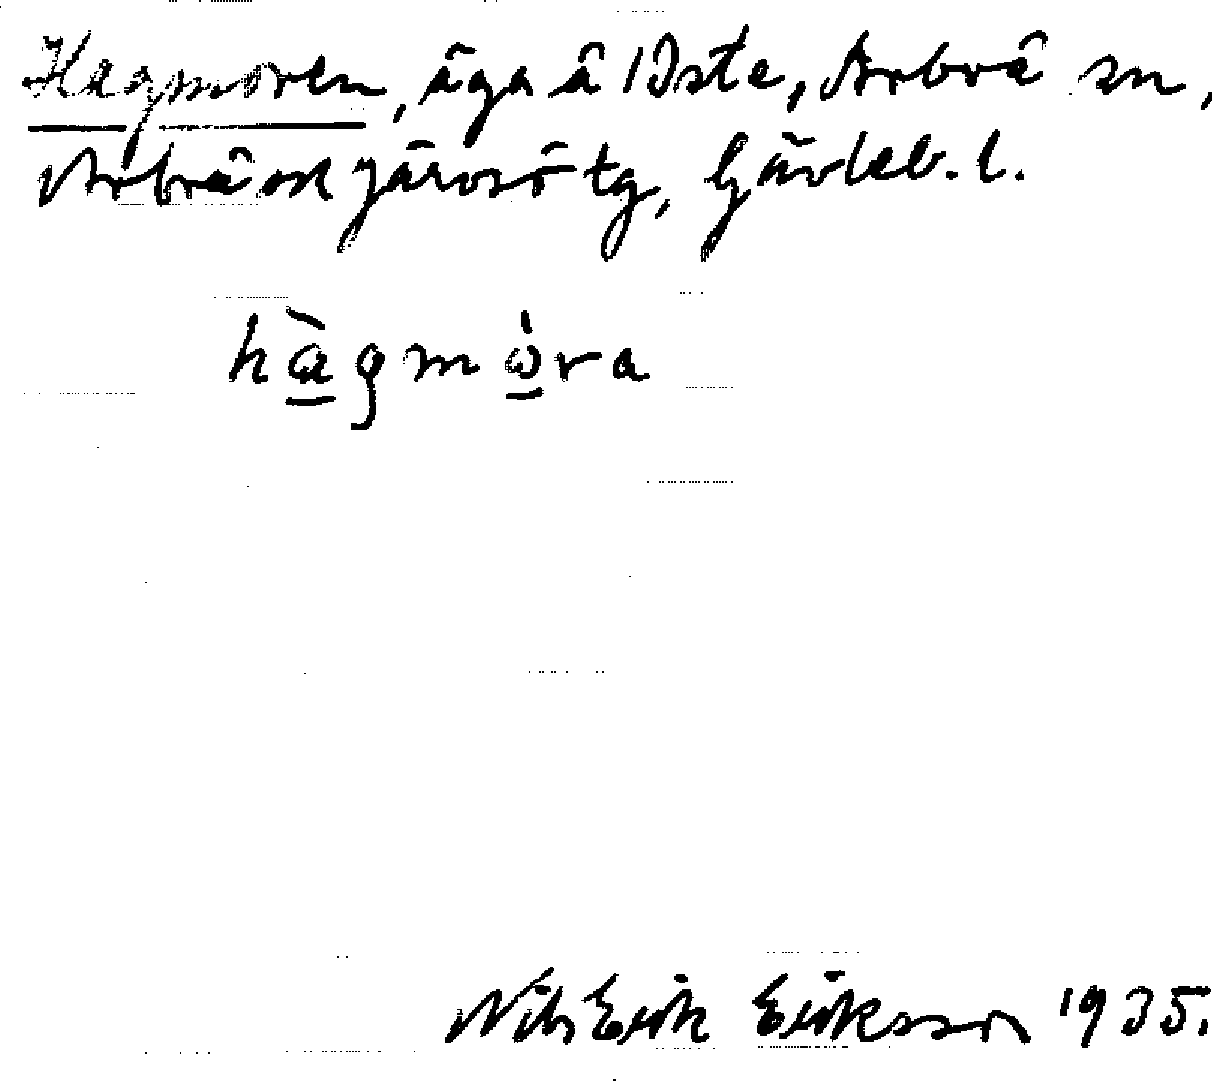 Hagmoren, äga å Öste, Arbrå sn,
Arbrå ok Järvsö tg, Gävleb. l.
hàgmòra
Nils Erik Eriksson 1935.